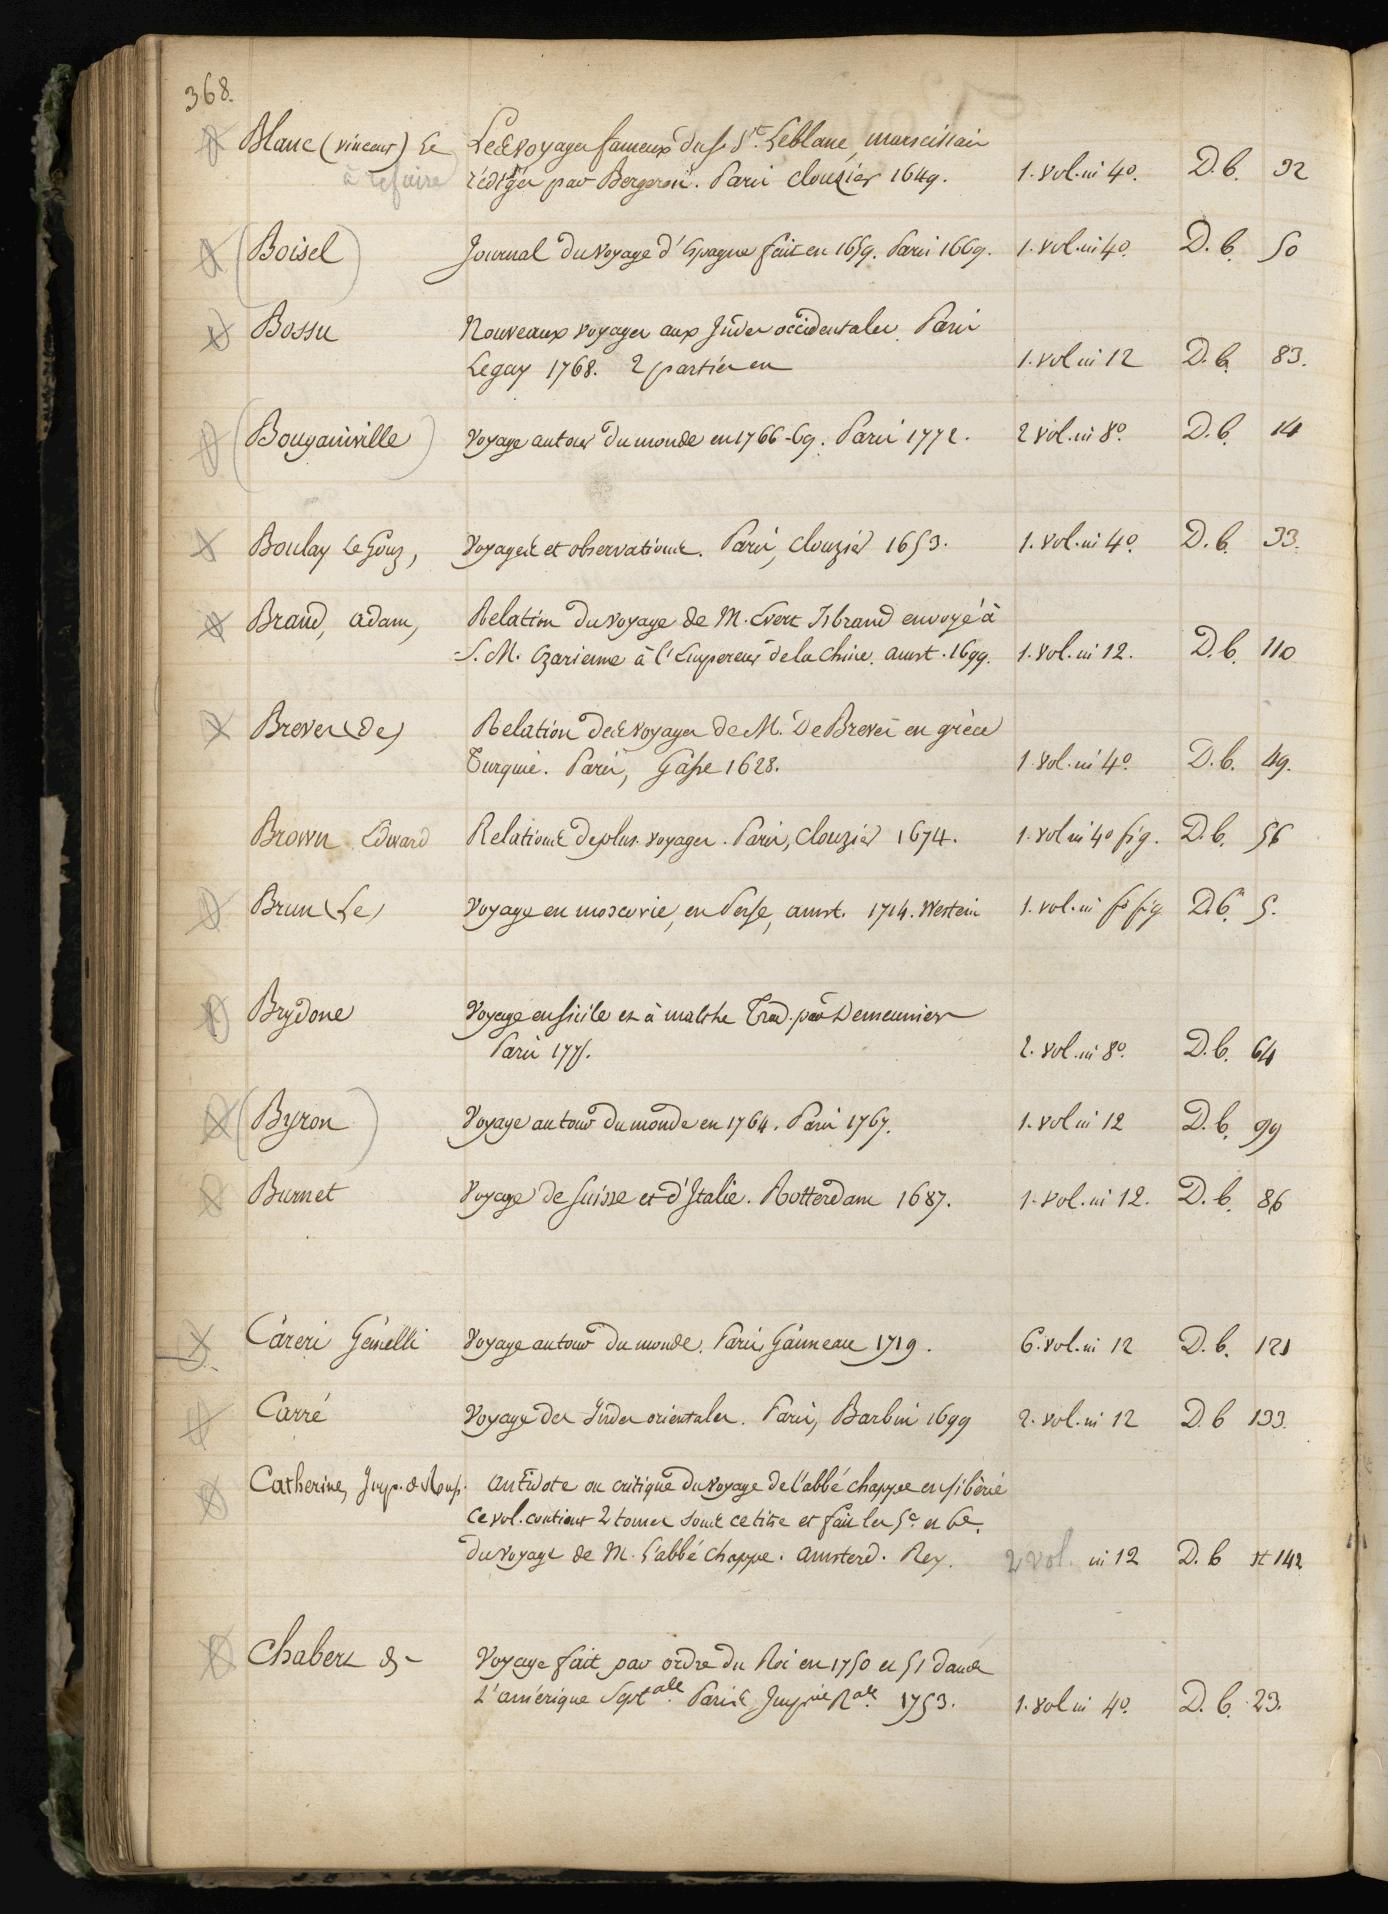 368.
Blanc (vincent) Le Les voyages fameux du Sr. Leblanc, marseillais
à refaire rédigés par Bergeron. Paris Clouzier 1649. 1. vol. in 4o. D. b. 32
Boisel Journal du voyage d'Espagne fait en 1659. Paris 1669. 1. vol. in 4o. D. b. 50
Bossu Nouveaux voyages aux Indes occidentales. Paris
Legay 1768. 2 parties en 1. vol in 12 D. b. 83.
Bougainville Voyage autour du monde en 1766-69. Paris 1772. 2 vol. in 8o. D. b. 14
Boulay Le Gouz, Voyages et observations. Paris, Clouzier 1653. 1. vol. in 4o. D. b. 33.
Brand, adam, Relation du voyage de M. Evert Isbrand envoyé à
S. M. Czarienne à l'Empereur de la Chine. amst. 1699. 1. vol. in 12. D. b. 110
Breves (de) Relation des voyages de M. De Breves en grèce
Turquie. Paris, Gasse 1628. 1. vol. in 4o. D. b. 49.
Brown Edward Relations de plus. voyages. Paris, Clouzier 1674. 1. vol in 4o fig. D. b. 56
Brun (Le) Voyage en moscovie, en Perse, amst. 1714. Westein 1. vol. in fo fig D. b. 5.
Brydone Voyage en Sicile et à malthe Trad. par Demeunier
Paris 1775. 2. vol. in 8o. D. b. 64
Byron Voyage autour du monde en 1764. Paris 1767. 1. vol in 12 D. b. 99
Burnet Voyage de Suisse et d'Italie. Rotterdam 1687. 1. vol. in 12. D. b. 86
Careri Gemelli Voyage autour du monde. Paris, Ganneau 1719. 6. vol. in 12 D. b. 121
Carré Voyage des Indes orientales. Paris, Barbin 1699 2. vol. in 12 D. b 133.
Catherine, Imp. de Russ. antidote ou critique du voyage de l'abbé chappe en sibérie
Ce vol. contient 2 tomes sous ce titre et fait les 5e. et 6e.
du voyage de M. l'abbé Chappe. amsterd. Rey. 2 vol. in 12 D. b 142
Chabert de Voyage fait par ordre du Roi en 1750 et 51 dans
L'amérique Septale. Paris Imprie Rale. 1753. 1. vol in 4o. D. b. 23.